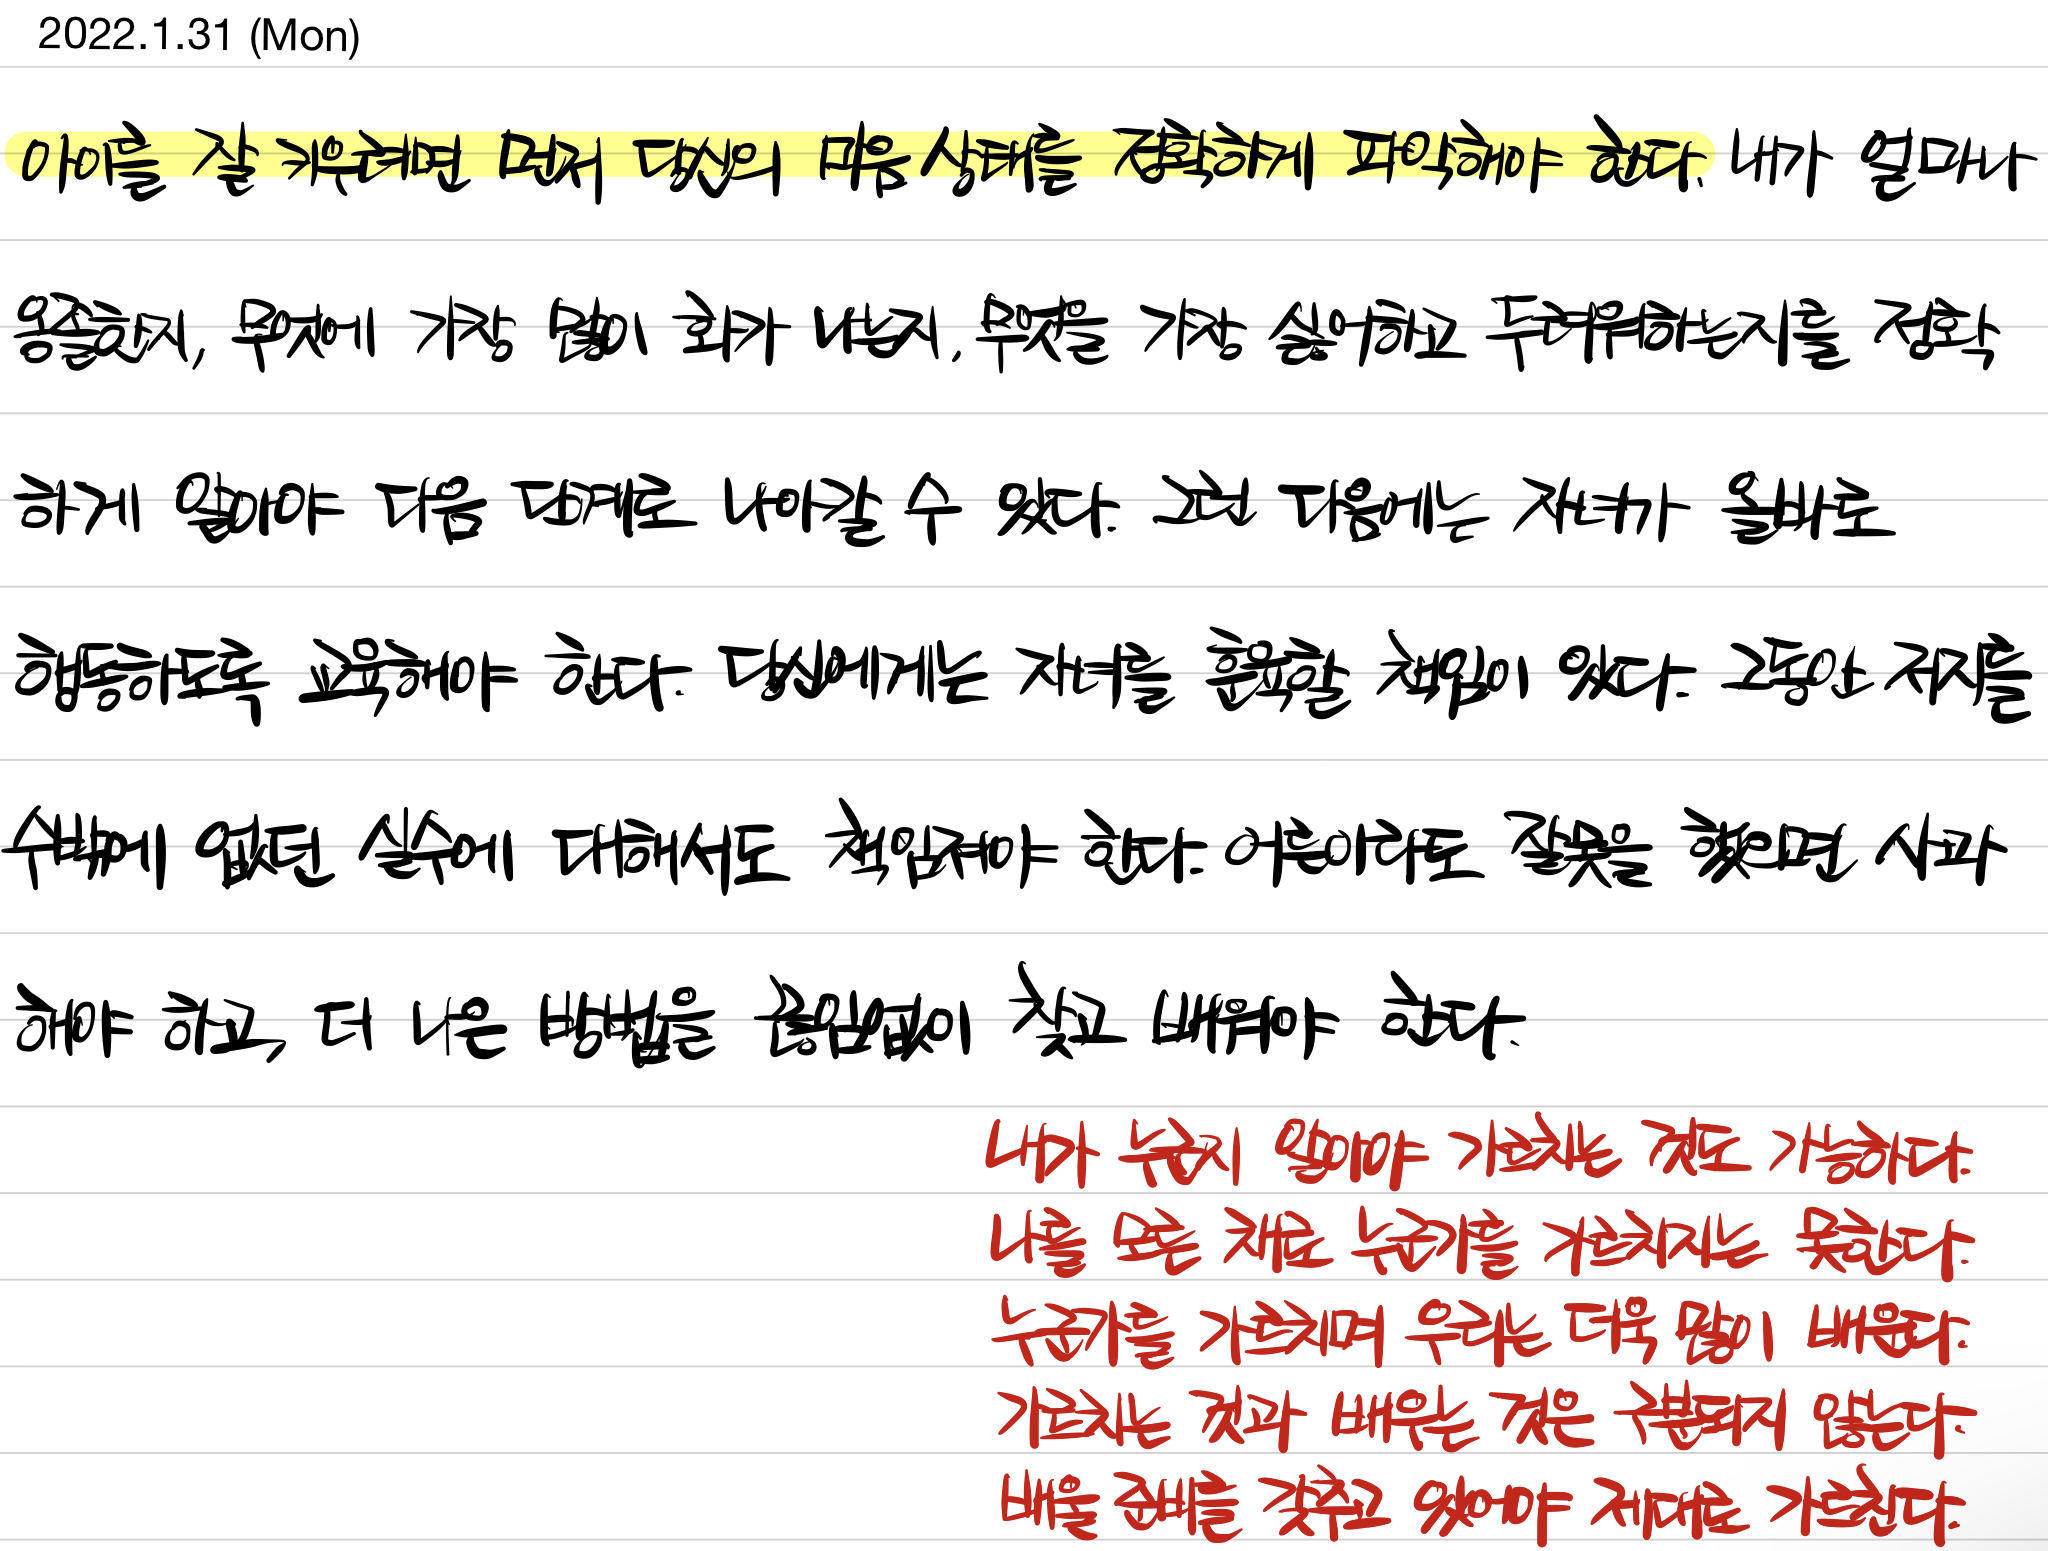 2022.1.31 (Mon)
아이를 잘 키우려면 먼저 당신의 마음 상태를 정확하게 파악해야 한다. 내가 얼마나
옹졸한지, 무엇에 가장 많이 화가 나는지, 무엇을 가장 싫어하고 두려워하는지를 정확
하게 알아야 다음 단계로 나아갈 수 있다. 그런 다음에는 자녀가 올바로
행동하도록 교육해야 한다. 당신에게는 자녀를 훈육할 책임이 있다. 그동안 저지를
수밖에 없던 실수에 대해서도 책임져야 한다. 어른이라도 잘못을 했으면 사과
해야 하고, 더 나은 방법을 끊임없이 찾고 배워야 한다.
내가 누군지 알아야 가르치는 것도 가능하다.
나를 모른 채로 누군가를 가르치지는 못한다.
누군가를 가르치며 우리는 더욱 많이 배운다.
가르치는 것과 배우는 것은 구분되지 않는다.
배울 준비를 갖추고 있어야 제대로 가르친다.